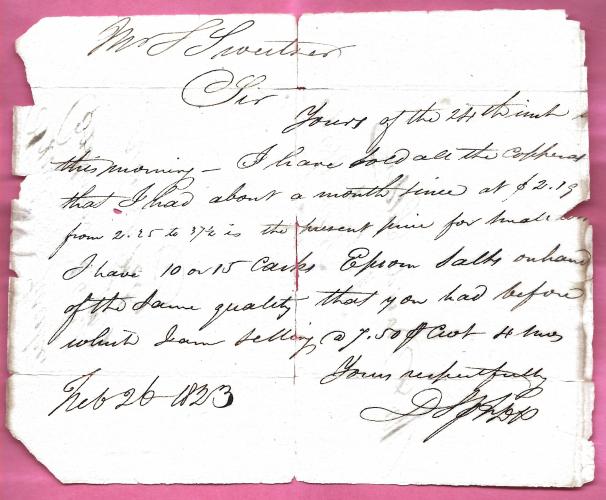 Mr S Sweetser
Sir
Yours of the 24th inst
this morning – I have sold all the copperas
that I had about a month since at $2.19
from 2.25 to 37½ is the present price for small
I have 10 or 15 Casks Epsom Salts on hand
of the same quality that you had before
which I am selling @ 7.50 Cwt 4 mos
Yours respectfully
Feb 26 1823